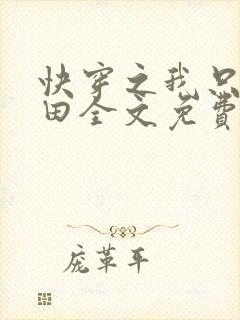 快穿之我只
田全文免费
庞革平